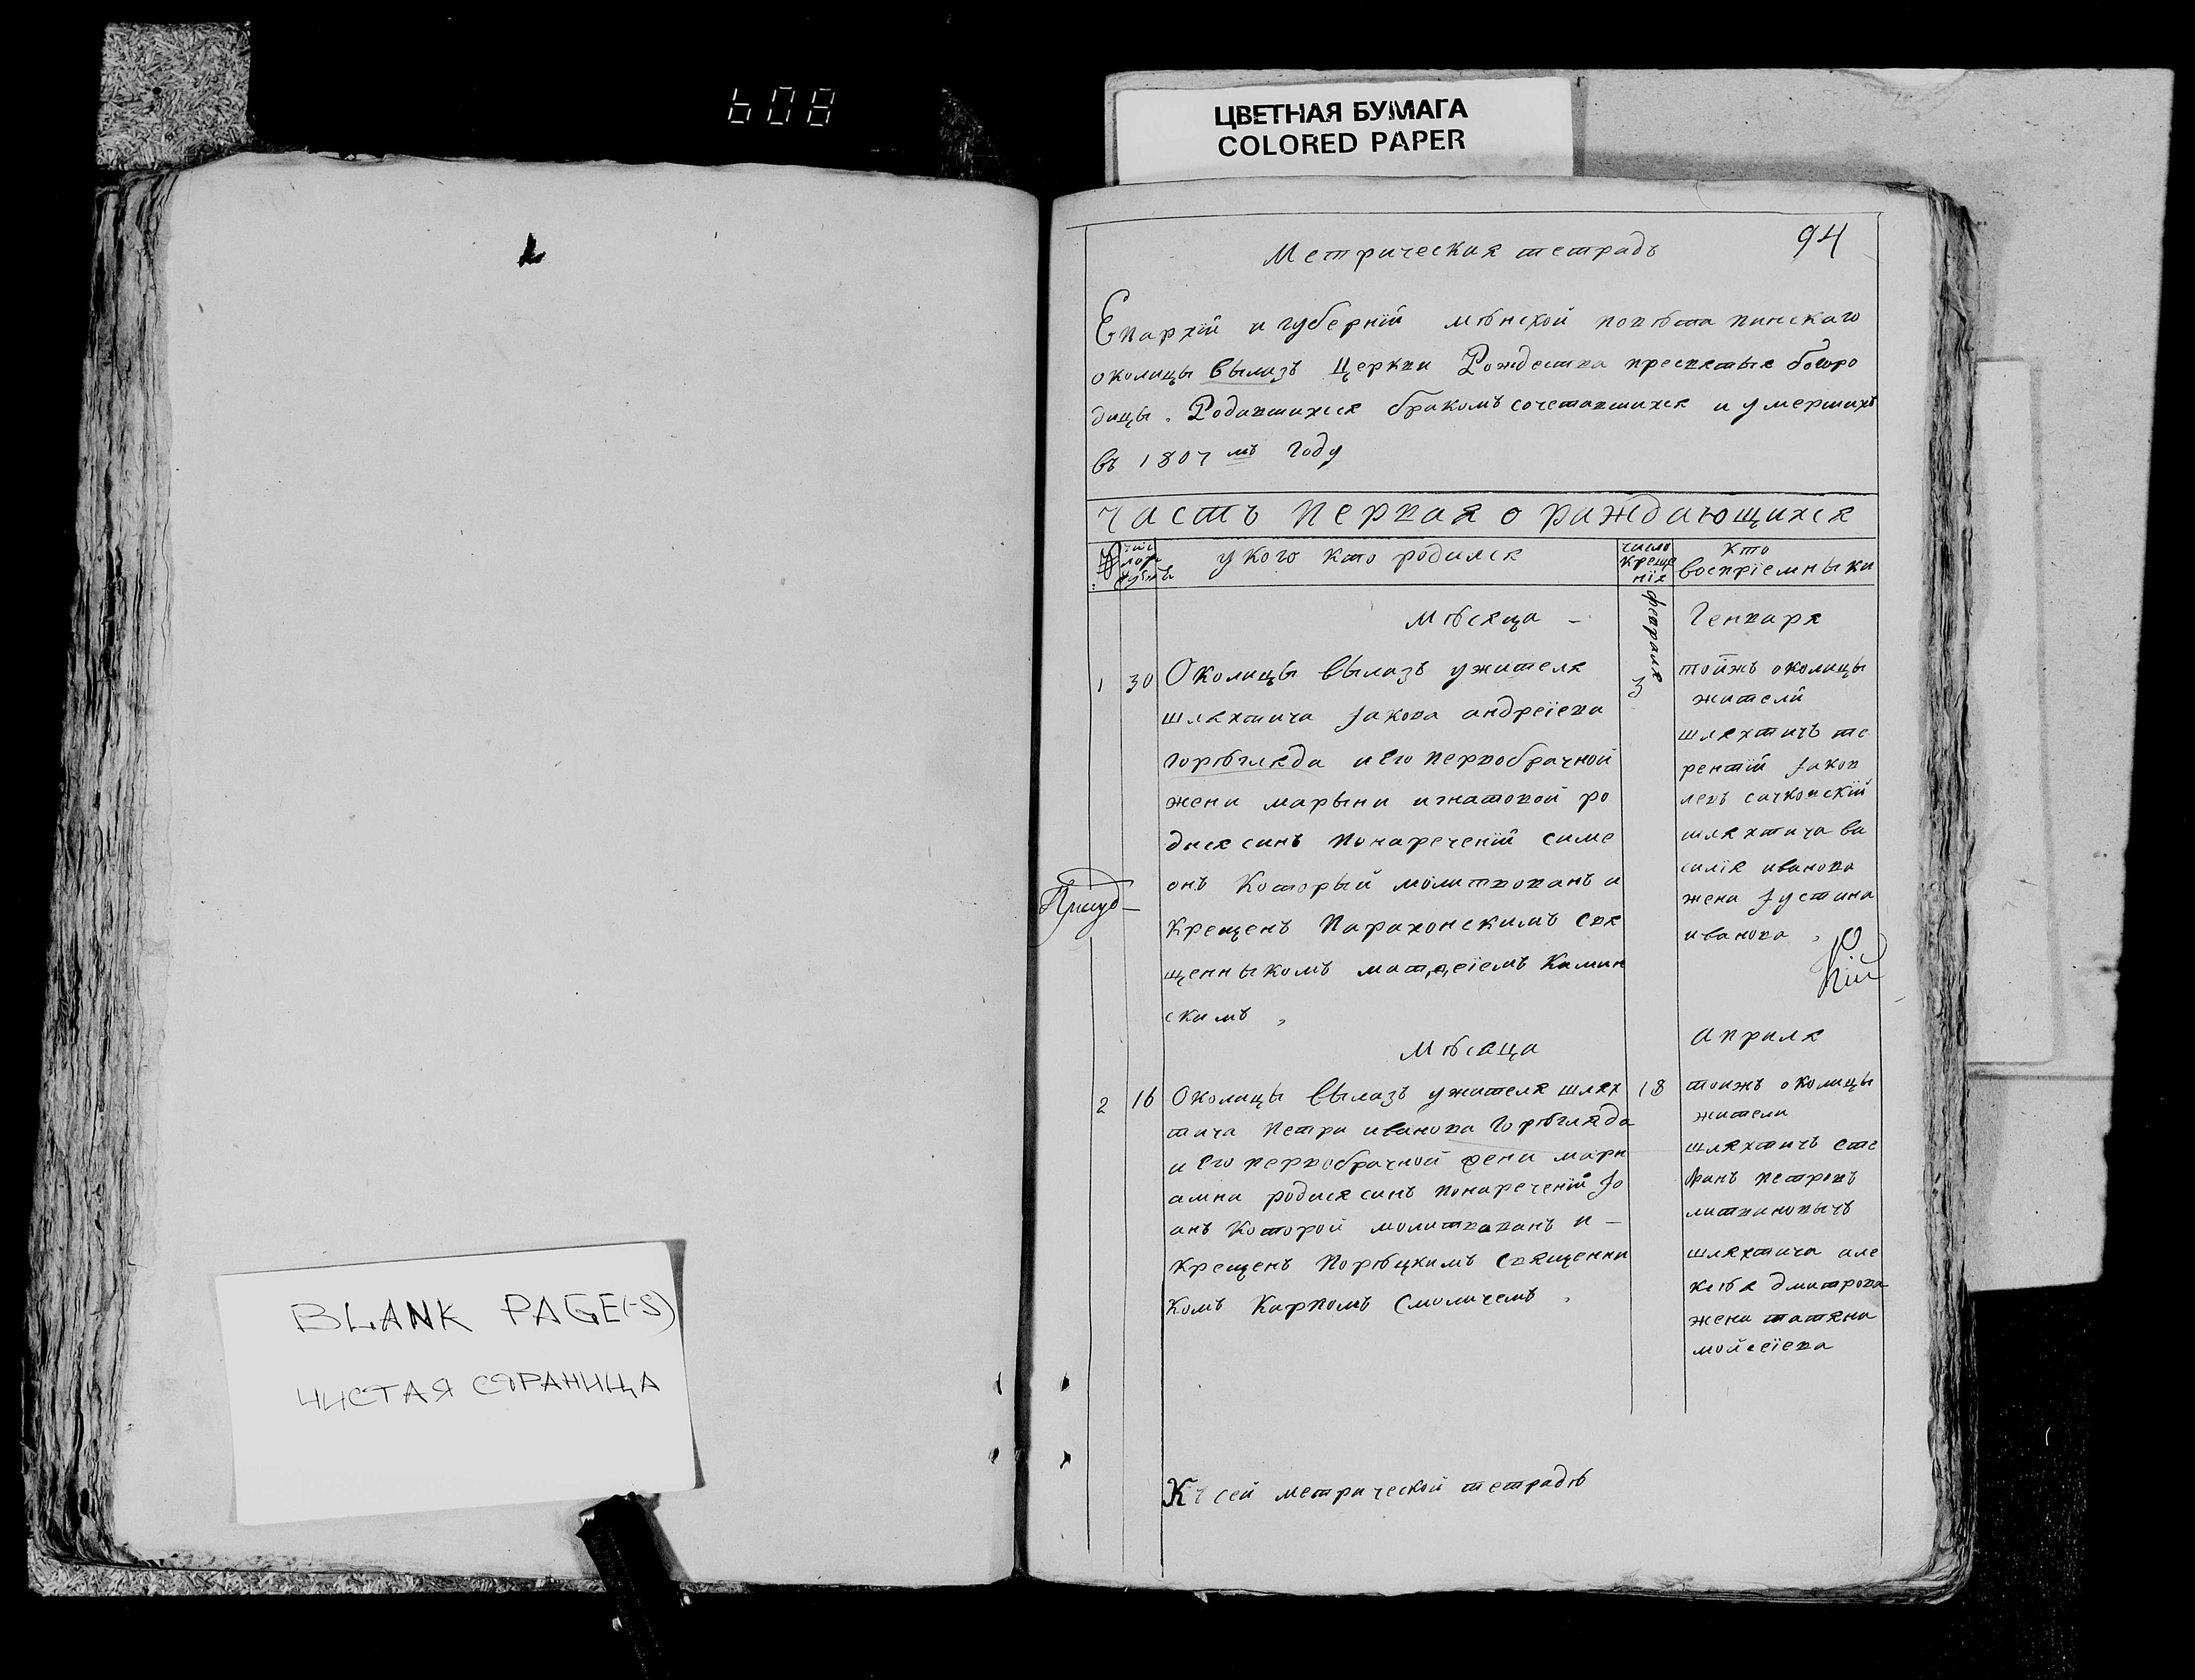 608
ЦВЕТНАЯ БУМАГА
COLORED PAPER
BLANK PAGE(-S)
ЧИСТАЯ СТРАНИЦА
94
Метрическая тетрадь
Епархїй и губернїй мѣнской повѣта пинскаго
околицы вылазъ Церкви Рождества пресвятыя богоро
дицы. Родившихся бракомъ сочетавшихся и умершихъ
въ 1807 мъ году
Часть первая о раждающихся
у кого кто родился
число
креще
нїя
кто
воспрїемныки
Мѣсяца - Генваря
1 30
Околицы вылазъ ужителя
шляхтича Јакова андреїева
горѣгляда и его первобрачной
жени марыни игнатовой ро
дися синъ понареченїй симе
онъ который молитвованъ и
крещенъ Парахонскимъ свя
щенныкомъ матѳеїемъ Камин
скимъ,
февраля
3
тойжъ околицы
жители
шляхтичъ те
рентїй Јаков
левъ сачковскїй
шляхтича ва
силїя иванова
жена Јустина
иванова,
кїй
Мѣсаца Априля
2 16
Околицы вылазъ ужителя шлях
тича петра иванова Горѣгляда
и его первобрачной жени мари
амни родися синъ понареченїй Јо
анъ которой молитвованъ и -
крещенъ Порѣцкимъ священни
комъ Карпомъ Смоличемъ,
18
тоижъ околицы
жители
шляхтичъ сте
ѳанъ петровъ
литвиновычъ
шляхтича але
ксѣя дмитрова
жена татяна
мойсеїева
Къ сей метрической тетрадѣ